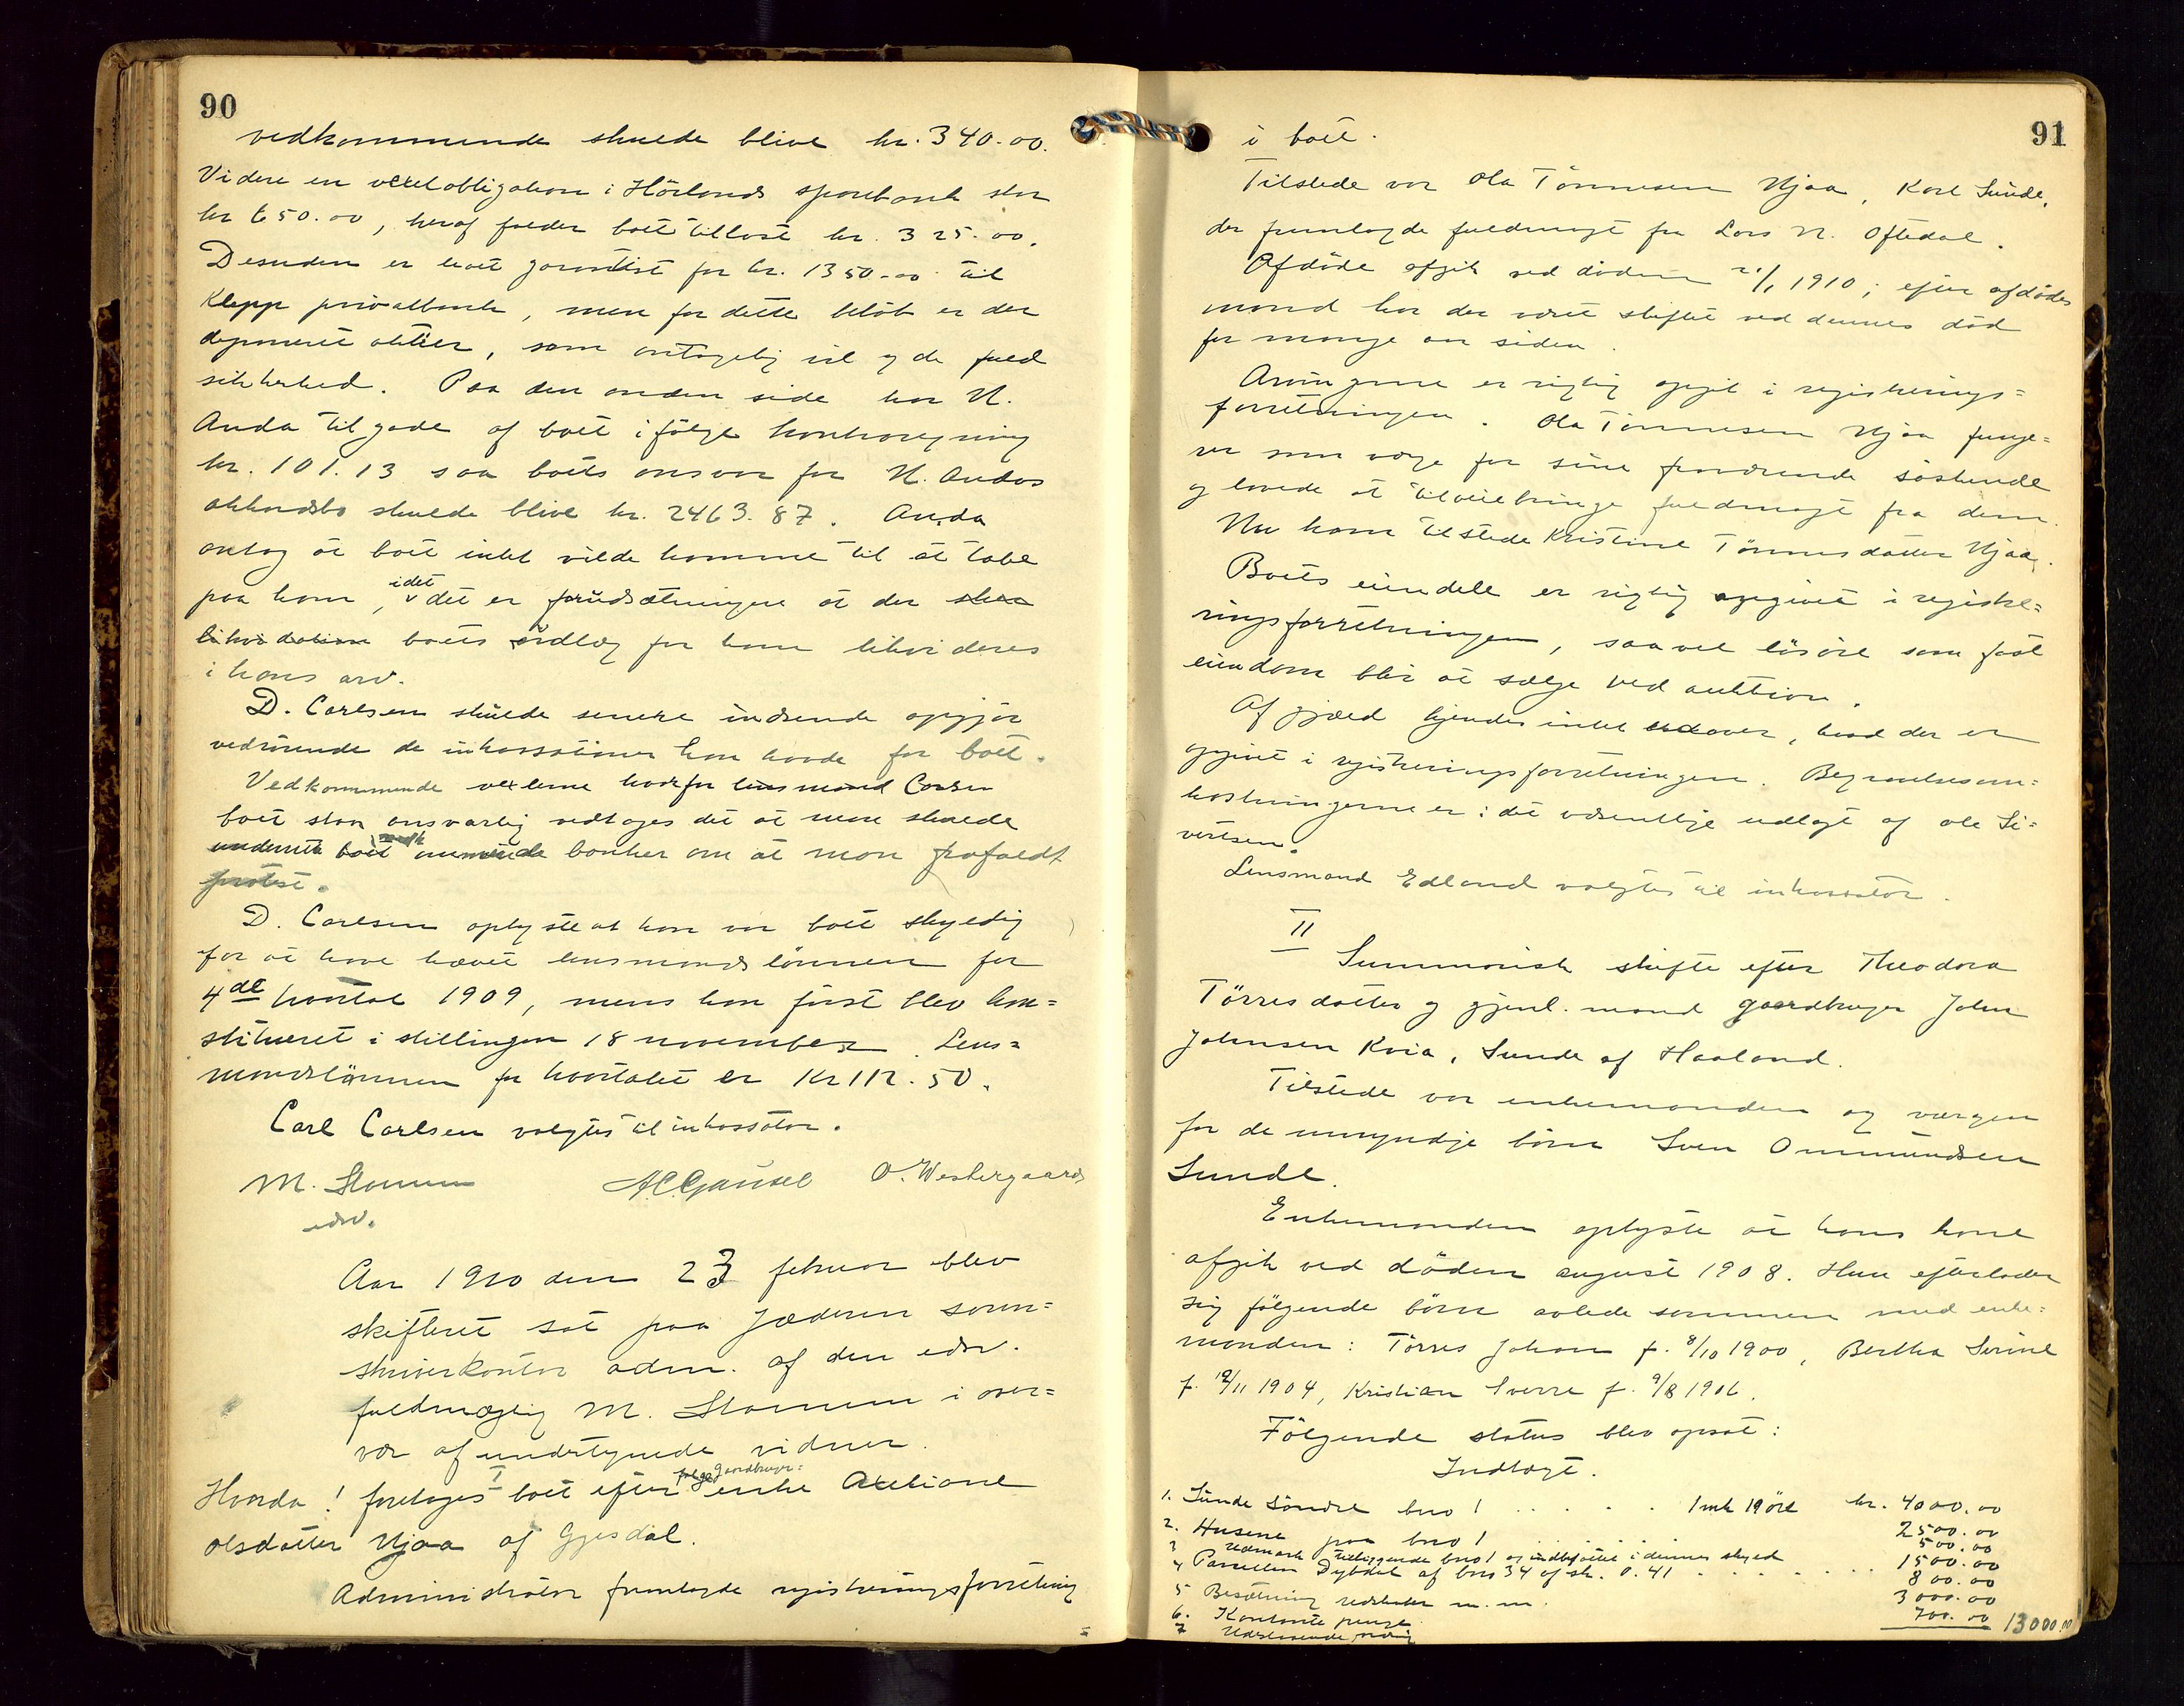 90
vedkommende skulde blive kr. 340.00.
Videre en vexelobligation i Hörlands sparebank stor
kr 650.00, heraf falder boet tillast kr. 325.00.
Desuden er boet garantist for kr. 1350-00 til
Klepp privatbank, men for dette belöb er der
deponeret aktier, som antagelig vil yde fuld
sikkerhed. Paa den anden side har N.
Anda tilgode af boet ifölge kontraregning
kr. 101.13 saa boets ansvar for N. Andas
akkordsbo skulde blive kr. 2463.87. Anda
antog at boet intet vilde komme til at tabe
paa ham, idet det er forudsætningen at der skra
likvidation boets udlæg for ham likvideres
i hans arv.
D. Carlsen skulde senere indsende opgjör
vedrörende de inkassationer han havde for boet.
Vedkommende vexlerne hvorfor lensmand Carlsen
boet staar ansvarlig vedtoges det at man skulde
underrette boet banker om at man frafaldt
protest.
D. Carlsen oplyste at han var boet skyldig
for at have hævet lensmandslönnen for
4de kvartal 1909, mens han först blev kon=
stitueret i stillingen 18 november. Lens=
mandslönnen for kvartalet er Kr 112.50.
Carl Carlsen valgtes til inkassator.
M. Stamm A C Gausel O. Westergaard
edsv.
Aar 1910 den 23 februar blev
skifteret sat paa Jæderen soren=
skriverkontor adm. af den edsv.
fuldmægtig M. Stamm i over=
vær af undertegnede vidner.
Hvorda! foretoges I boet efter gaardbruger=
enke Axeliane
Olsdatter Njaa af Gjesdal.
Administrator fremlagde registreringsforretning
91
i boet.
Tilstede var Ola Tönnesen Njaa, Karl Sunde,
der fremlagde fuldmagt fra Lars N. Oftedal.
Afdöde afgik ved döden 21/1 1910; efter afdödes
mand har der været skiftet ved dennes död
for mange aar siden.
Arvingerne er rigtig opgit i registrerings=
forretningen. Ola Tönnesen Njaa funge=
rer som værge for sine fraværende söskende
og lovede at tilveiebringe fuldmagt fra dem.
Nu kom tilstede Kristine Tönnesdatter Njaa.
Boets eiendele er rigtig opgivet i registre=
ringsforretningen, saavel lösöre som fast
eiendom blir at sælge ved auktion.
Af gjæld kjendes intet udover, hvad der er
opgivet i registreringsforretningen. Begravelsesom=
kostningerne er i det væsentlige udlagt af Ole Si=
vertsen.
Lensmand Edland valgtes til inkassator.
II
Summarisk skifte efter Theodora
Törresdatter og gjenl. mand gaardbruger John
Johnsen Kvia, Sunde af Haaland.
Tilstede var enkemanden og værgen
for de umyndige börn Sven Ommundsen
Sunde.
Enkemanden oplyste at hans kone
afgik ved döden august 1908. Hun efterlader
sig fölgende börn avlede sammen med enke=
manden: Törres Johan f. 8/10 1900, Bertha Serine
f. 12/11 1904, Kristian Sverre f. 9/8 1906.
Fölgende status blev opsat:
Indtægt.
1. Sunde söndre bno 1 . . . . . 1 mk 19 öre kr. 4000.00
2. Husene paa bno 1 . . . . . . 2500.00
3 Udmark tilliggende bno 1 og indbefattet i dennes skyld 500.00
4 Parcellen Dybdal af bno 34 af sk. 0.41 . . . . . . 1500.00
5 Besætning redskaber m. m. 800.00
6. Kontante penge 3000.00
7 Udestaaende 700.00 13000.00